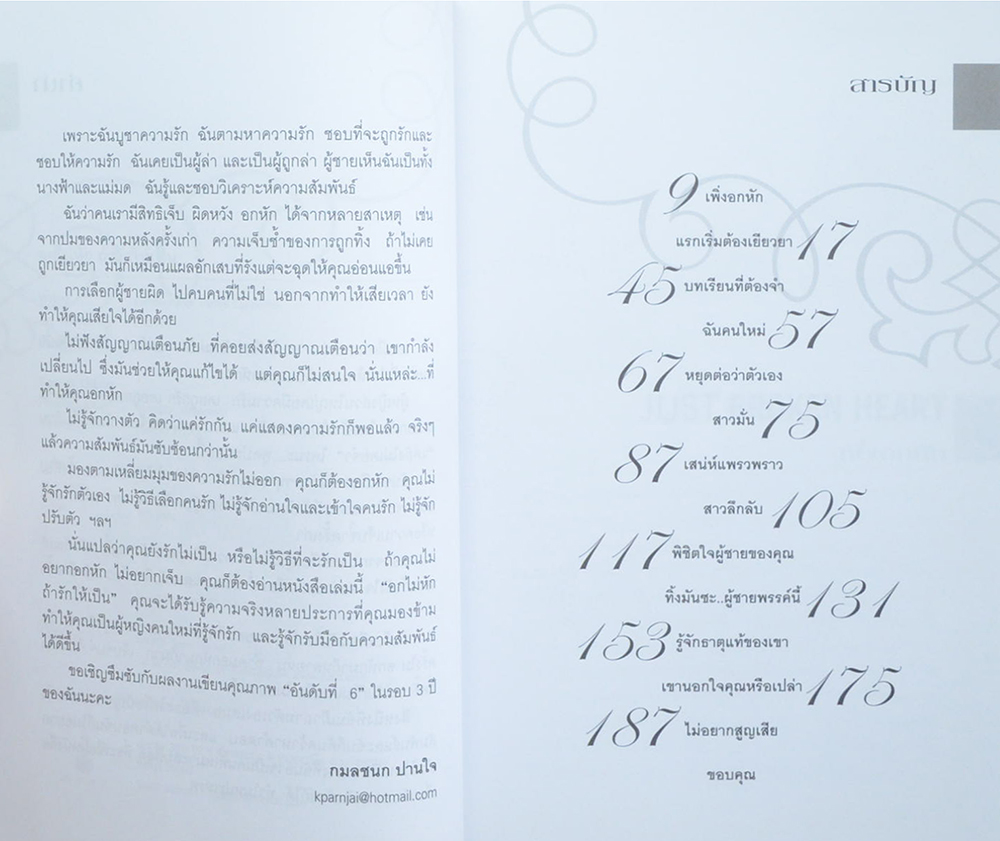 เพราะฉันบูชาความรัก ฉันตามหาความรัก ชอบที่จะถูกรักและ
ชอบให้ความรัก ฉันเคยเป็นผู้ล่า และเป็นผู้ถูกล่า ผู้ชายเห็นฉันเป็นทั้ง
นางฟ้าและแม่มด ฉันรู้และชอบวิเคราะห์ความสัมพันธ์
ฉันว่าคนเรามีสิทธิเจ็บ ผิดหวัง อกหัก ได้จากหลายสาเหตุ เช่น
จากปมของความหลังครั้งเก่า ความเจ็บซ้ำของการถูกทิ้ง ถ้าไม่เคย
ถูกเยียวยา มันก็เหมือนแผลอักเสบที่รังแต่จะฉุดให้คุณอ่อนแอขึ้น
การเลือกผู้ชายผิด ไปคบคนที่ไม่ใช่ นอกจากทำให้เสียเวลา ยัง
ทำให้คุณเสียใจได้อีกด้วย
ไม่ฟังสัญญาณเตือนภัย ที่คอยส่งสัญญาณเตือนว่า เขากำลัง
เปลี่ยนไป ซึ่งมันช่วยให้คุณแก้ไขได้ แต่คุณก็ไม่สนใจ นั่นแหล่ะ...ที่
ทำให้คุณอกหัก
ไม่รู้จักวางตัว คิดว่าแค่รักกัน แค่แสดงความรักก็พอแล้ว จริงๆ
แล้วความสัมพันธ์มันซับซ้อนกว่านั้น
มองตามเหลี่ยมมุมของความรักไม่ออก คุณก็ต้องอกหัก คุณไม่
รู้จักรักตัวเอง ไม่รู้วิธีเลือกคนรัก ไม่รู้จักอ่านใจและเข้าใจคนรัก ไม่รู้จัก
ปรับตัว ฯลฯ
นั่นแปลว่าคุณยังรักไม่เป็น หรือไม่รู้วิธีที่จะรักเป็น ถ้าคุณไม่
อยากอกหัก ไม่อยากเจ็บ คุณก็ต้องอ่านหนังสือเล่มนี้ “อกไม่หัก
ถ้ารักให้เป็น” คุณจะได้รับรู้ความจริงหลายประการที่คุณมองข้าม
ทำให้คุณเป็นผู้หญิงคนใหม่ที่รู้จักรัก และรู้จักรับมือกับความสัมพันธ์
ได้ดีขึ้น
ขอเชิญซึมซับกับผลงานเขียนคุณภาพ “อันดับที่ 6” ในรอบ 3 ปี
ของฉันนะคะ
กมลชนก ปานใจ
kparnjai@hotmail.com
สารบัญ
9 เพิ่งอกหัก
แรกเริ่มต้องเยียวยา 17
45 บทเรียนที่ต้องจำ
ฉันคนใหม่ 57
67 หยุดต่อว่าตัวเอง
สาวมั่น 75
87 เสน่ห์แพรวพราว
สาวลึกลับ 105
117 พิชิตใจผู้ชายของคุณ
ทิ้งมันซะ..ผู้ชายพรรค์นี้ 131
153 รู้จักธาตุแท้ของเขา
เขานอกใจคุณหรือเปล่า 175
187 ไม่อยากสูญเสีย
ขอบคุณ